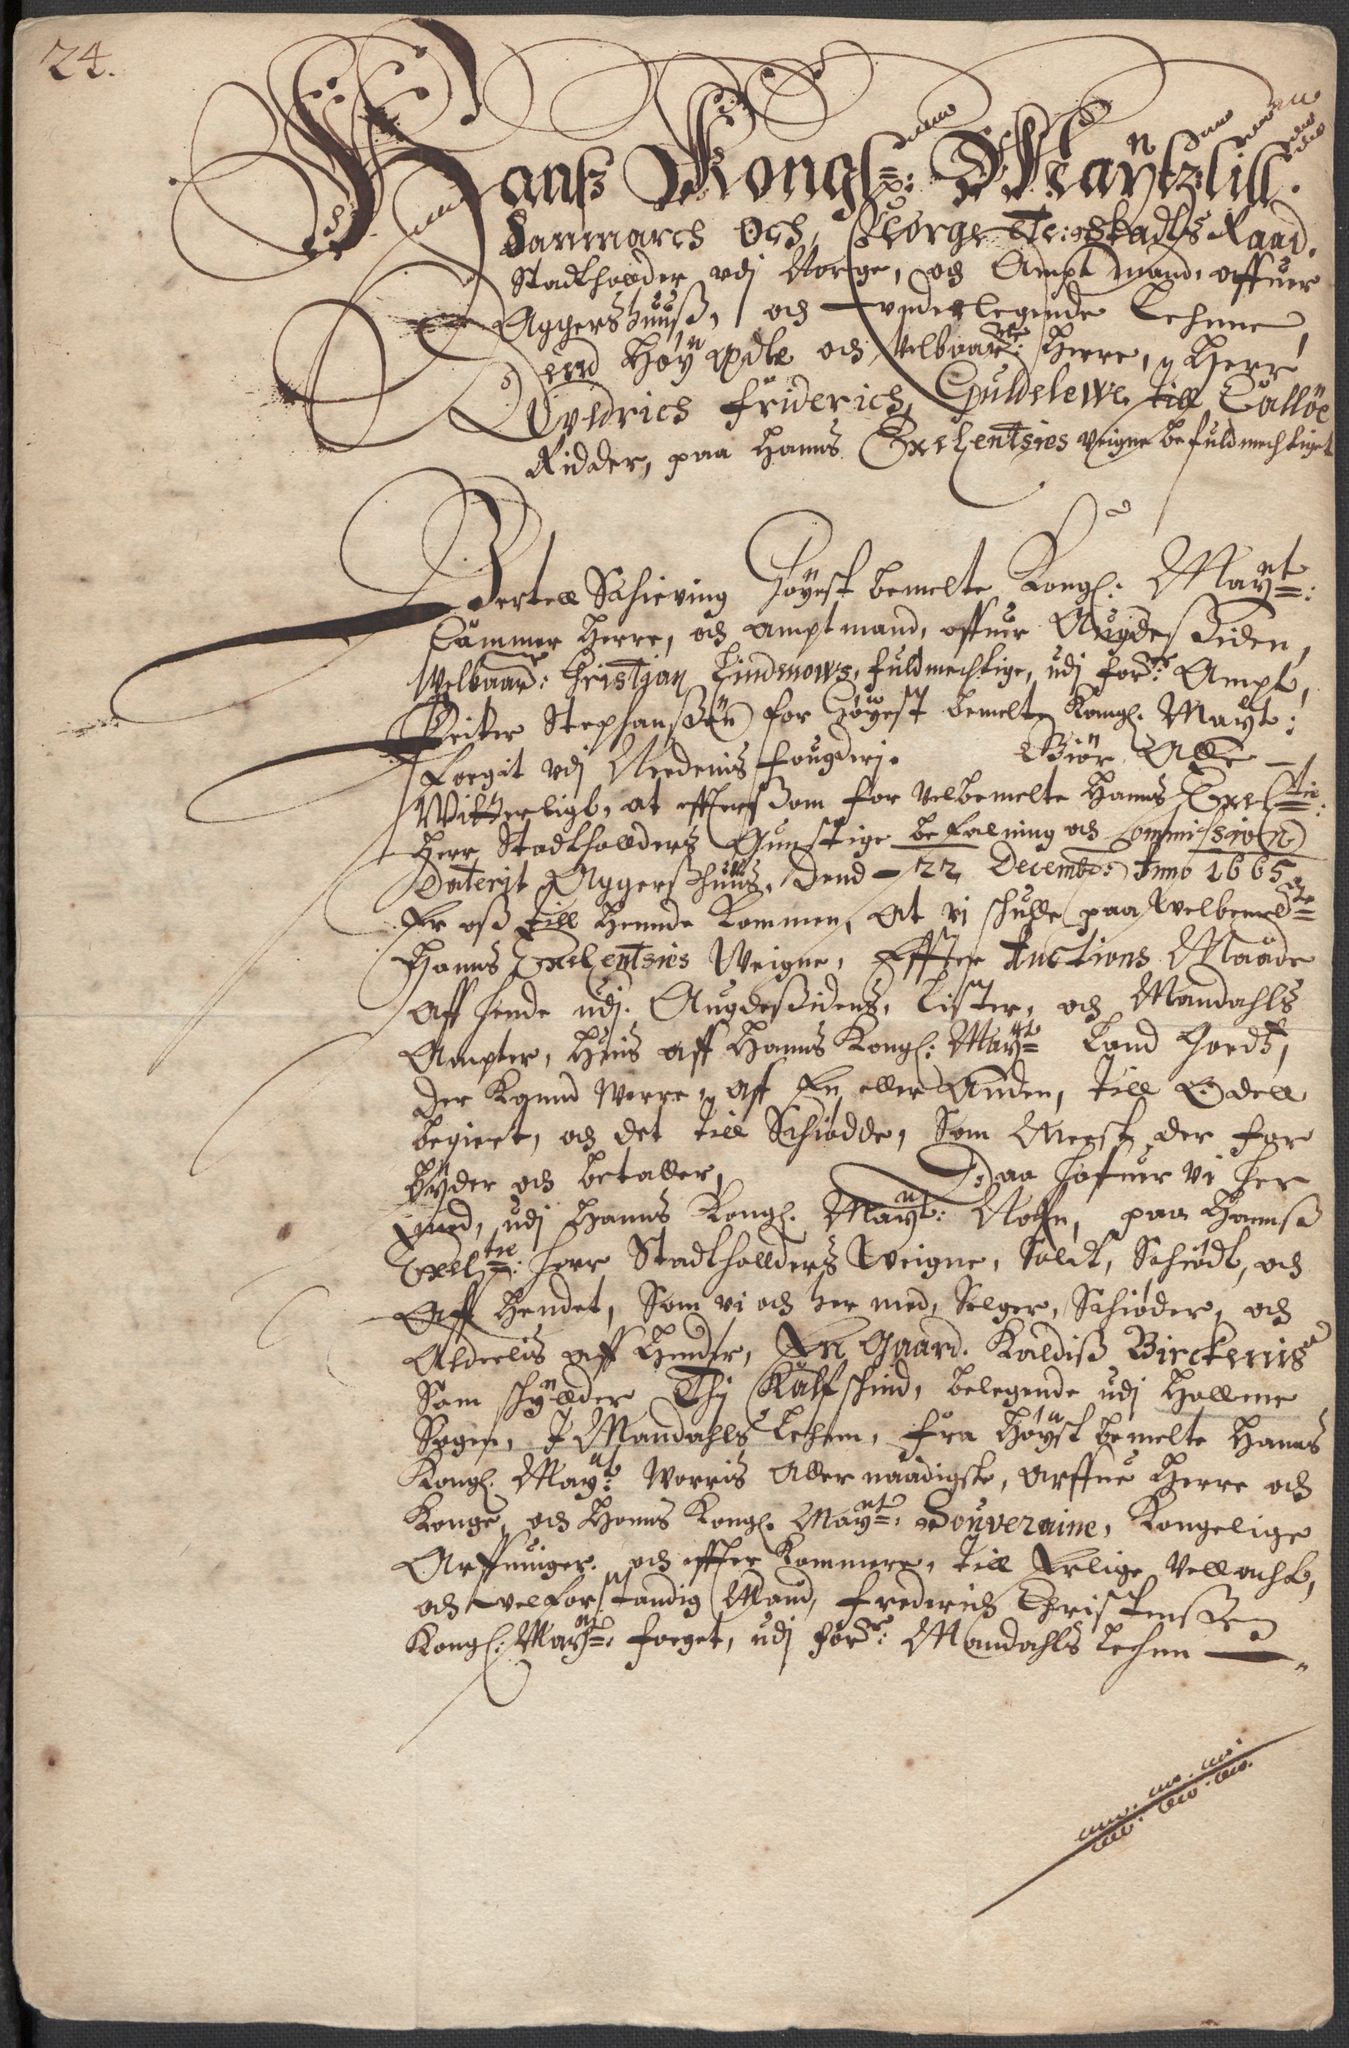 24.
Hanß Kongl: Maÿtz till
Danmarch Och Norge etc: Stadtz Raad.
Stadtholder udj Norge, och Ampt mand, offuer
Aggershuuß, och underlegende Lehnne,
Dend Höÿ Edle och Velbaarne: Herre, Herr
Vldrich Friderich Güldelewe till Callöe
Ridder, paa Hanns Exelentsies Veigne befuldmechtiget
Bertell Schieving Höyest bemelte Kongl: Maÿtt:
Cammer Herre, och amptmand, offuer Augdesiden,
Welbaarne: Christian Lindenows, fuldmechtige, udj forne: Ampt,
Peiter Stephanßön for Höyest bemelte Kongl: Maÿt:
Foegit vdj Nedenis fougderj. Giör Alle
Witterligt, at effterßom for velbemelte Hanns Exeltie:
Herr Stadtholders Gunstige befalning och Commission
Daterit Aggershuuß, Dend 22 Decembr: Anno 1665
Er oß till Hende kommen, at vi schulle paa Welbemelte
Hanns Exelentsies Veigne, Effter Auctions Maade
aff hende udj. Augdesidens, Lister, och Mandahls
Ampter, Huis aff Hanns Kongl: Maÿtt Land Jordtz,
der kunde Werre aff En eller Anden, till Odell
begieret, och det till Schiödde, Som Meest der for
byder och betaller, Daa hafuer vi her
med, udj Hanns Kongl: Maÿt: Nafn, paa Hannß
Exeltie: Herr Stadtholders Veigne, Soldt, Schiödt, och
Aff Hendet, Som vi och her med, Selger, Schiöder, och
Aldeelis aff Hender, En Gaard. Kaldiß Birckenes
Som schÿlder Thj Kalfschind, belegende udj Holleme
Sogen, J Mandahls Lehen, fra Höÿst bemelte Hanns
Kongl: Maÿt: Worris Aller naadigste, Arffue Herre och
Konge, och Hanns Kongl: Maÿtt: Souveraine, Kongelige
Arffuinger och effter kommere, till Erlige Vellacht,
och velforstandig Mand, Frederich Christenßen
Kongl: Maÿtt: foeget, udj forne: Mandahls Lehnn